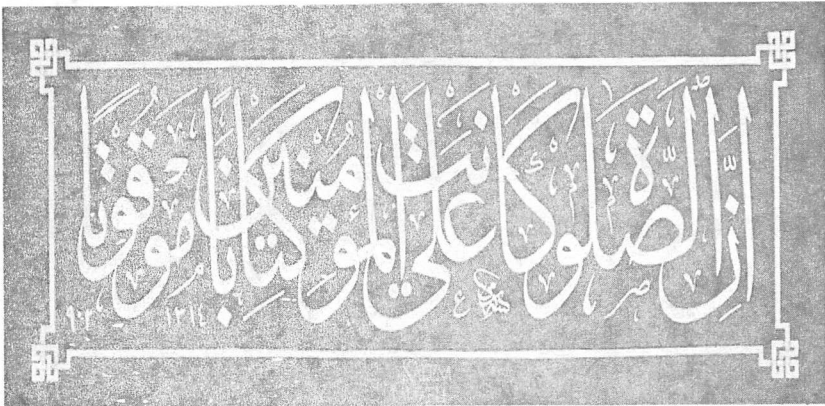 إنَّ الصلوة كانت على المؤمنين كتابًا موقوتًا
١٣١٤